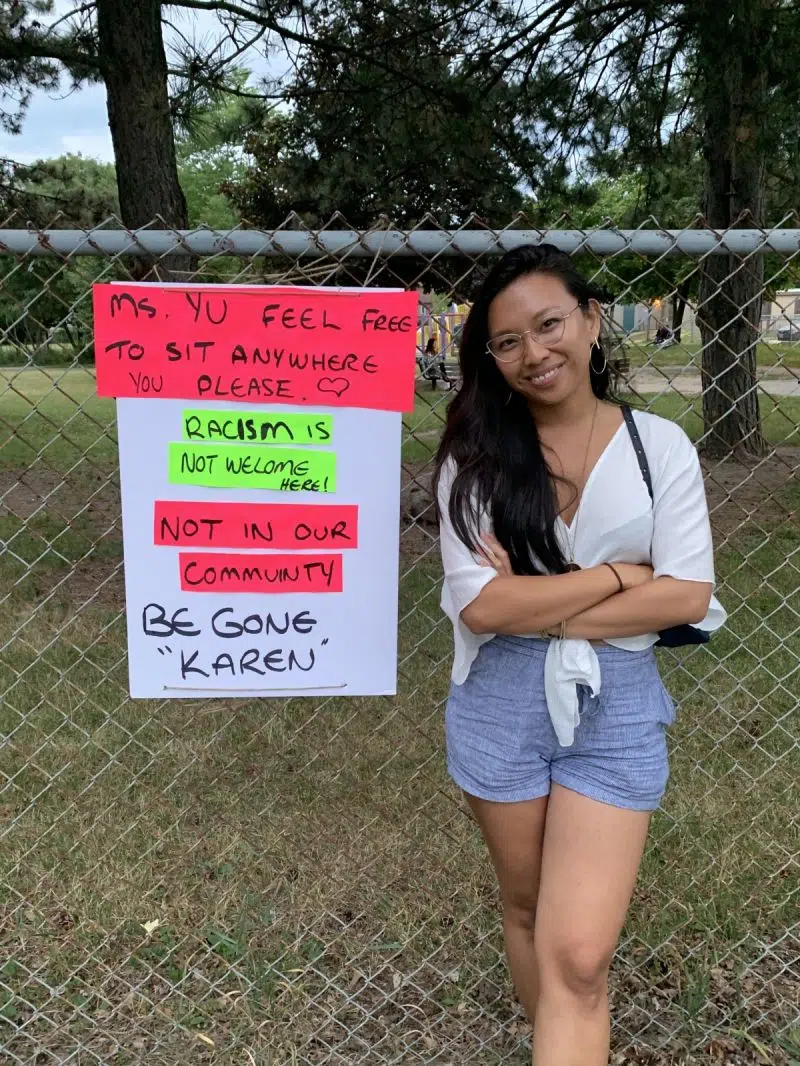 Ms. YU FEEL FREE
TO SIT ANYWHERE
YOU PLEASE. ♡
RACISM IS
NOT WELOME
HERE!
NOT IN OUR
COMMUINTY
BE GONE
"KAREN"